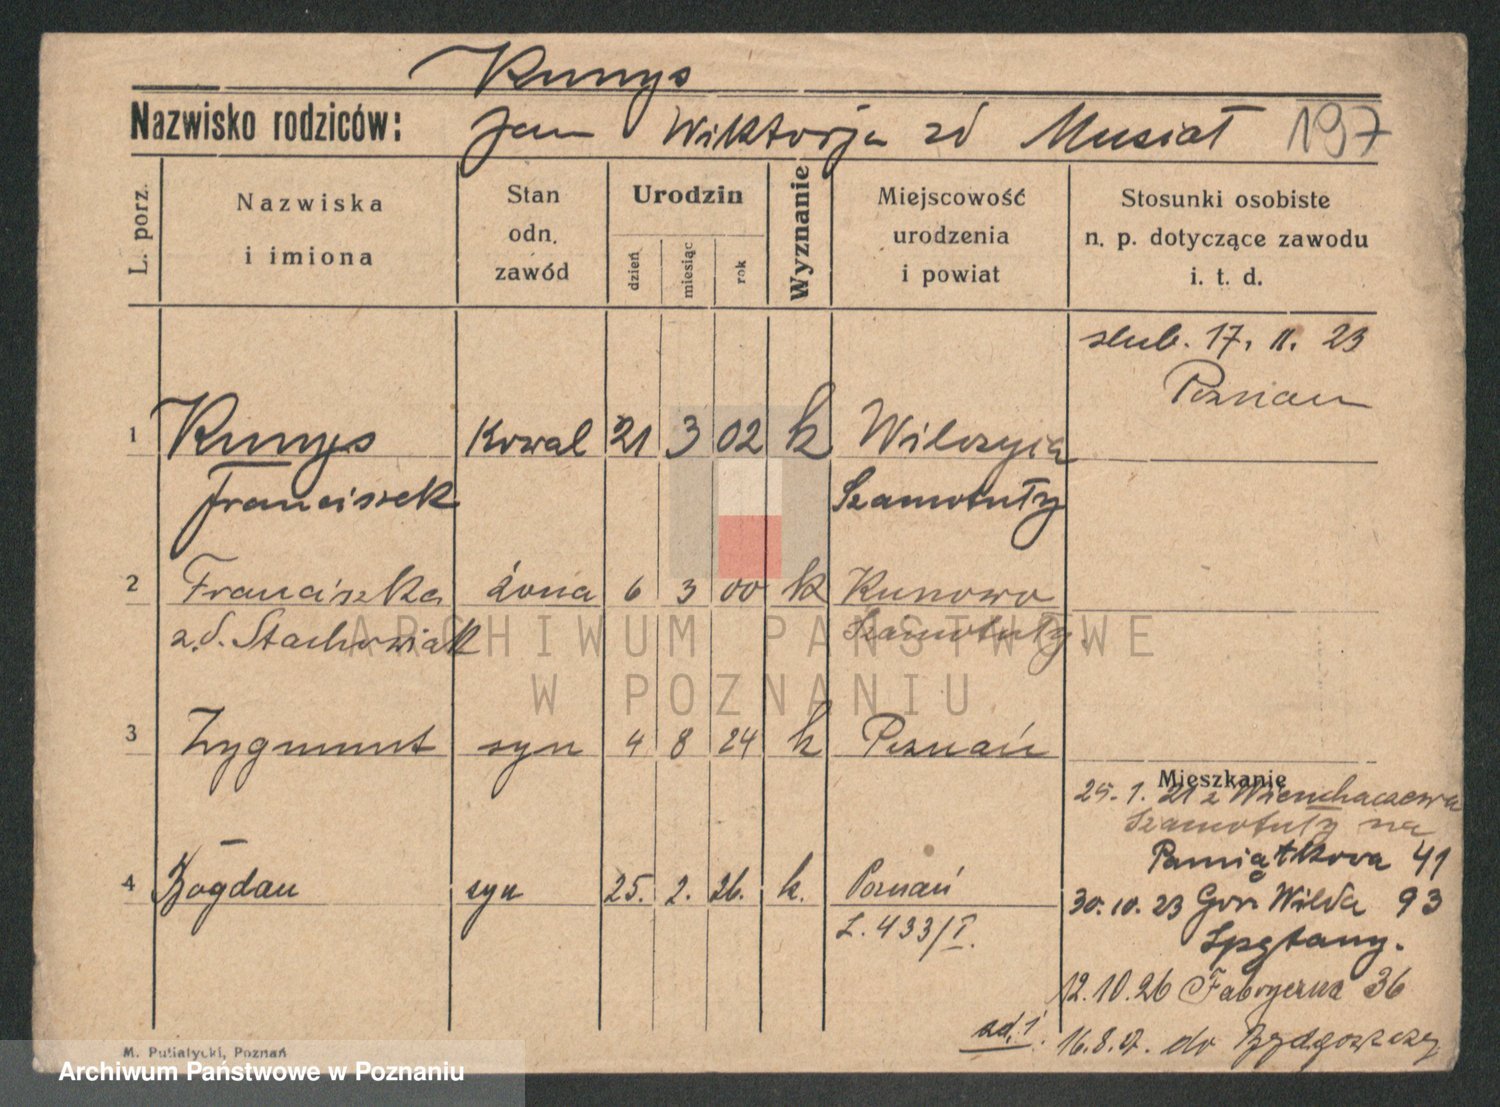 Kunys
Nazwisko rodziców: Jan Wiktorja zd Musiał 197
L. porz.
Nazwiska
i imiona
Stan
odn.
zawód
Urodzin
dzień
miesiąc
rok
Wyznanie
Miejscowość
urodzenia
i powiat
Stosunki osobiste
n. p. dotyczące zawodu
i. t. d.
slub. 17. II. 23
Poznan
1 Kunys Kowal 21 3 02 k Wilczyna
Franciszek Szamotuły
2 Franciszka żona 6 3 00 k Kunowo
z.d. Stachowiak Szamotuły
3 Zygmunt syn 4 8 24 k Poznań
Mieszkanie
25. 1. 21 z
Szamotuły na
Pamiątkowa 41
4 Bogdan syn 25. 2. 26. k. Poznań
30.10.23 Gor. Wilda 93
L. 433/I.
12.10.26 Fabryczna 36
ad. 1. 16.8. do Bydgoszczy
M. Putiatycki, Poznań
ARCHIWUM PAŃSTWOWE
W POZNANIU
Archiwum Państwowe w Poznaniu